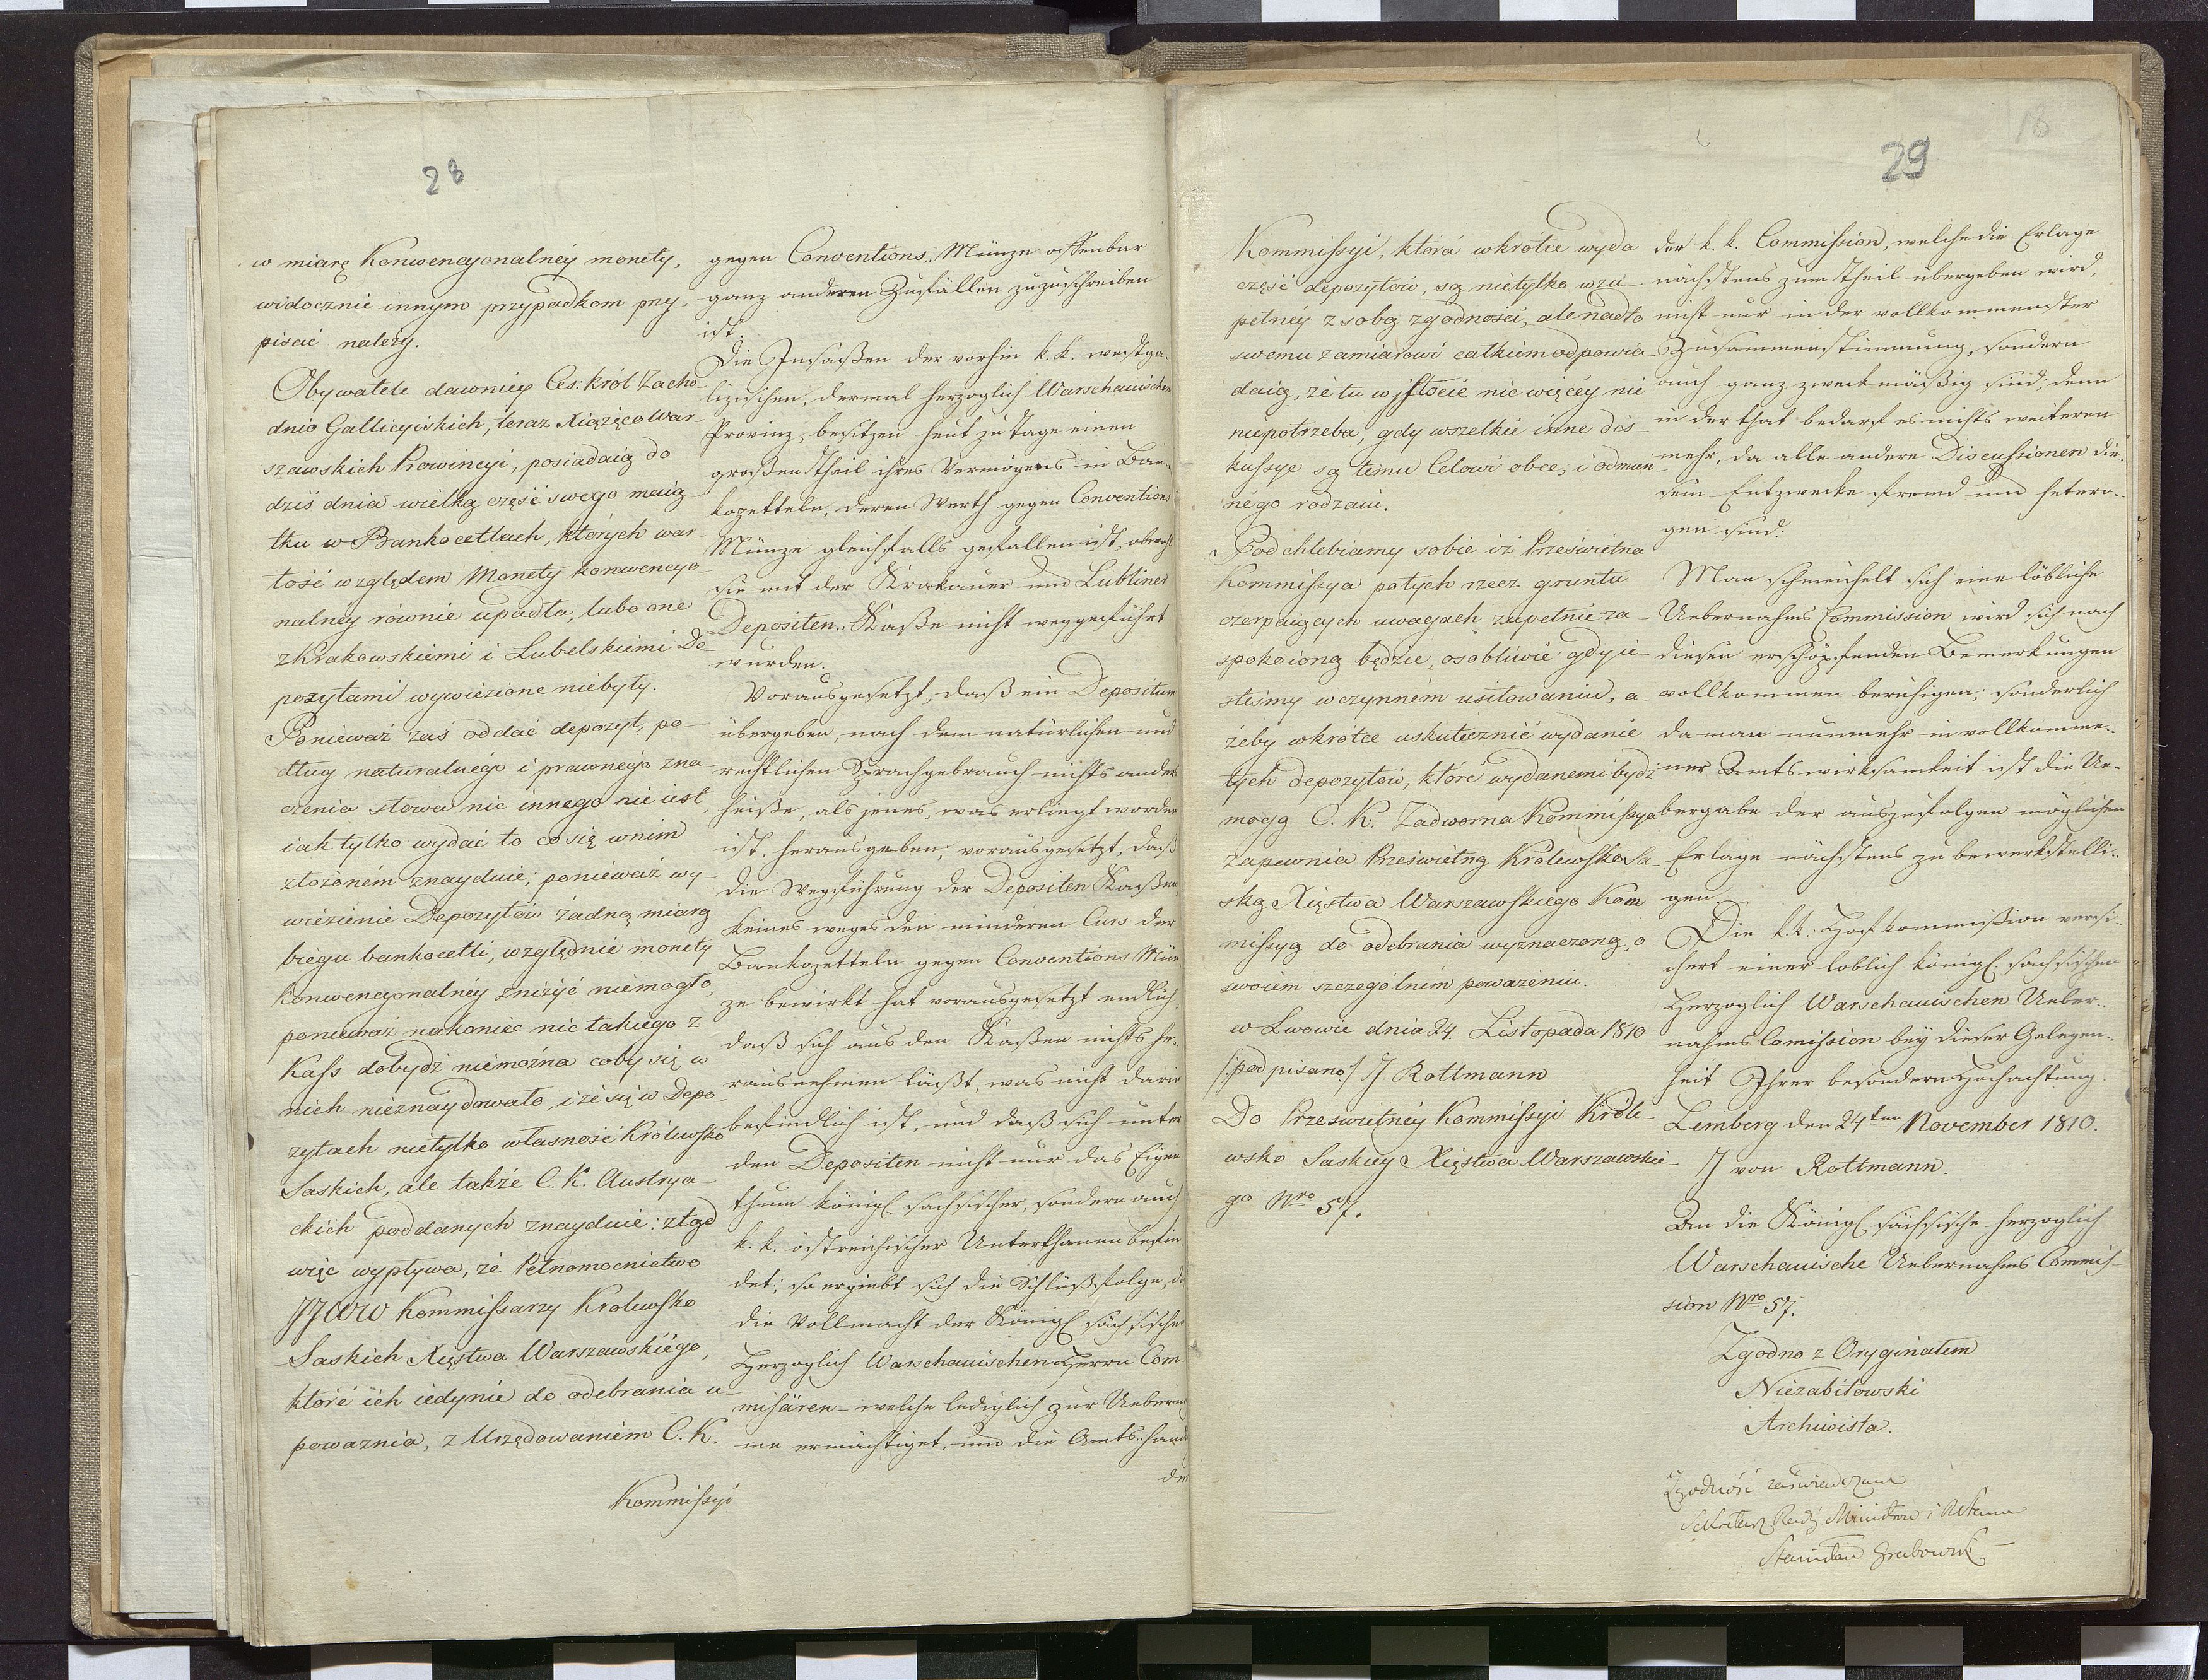 28
w miarę Konwencyonalnéy monety,
widocznie innym przypadkom przy
pisać należy.
Obywatele dawniéy Ces: król Zacho
dnio Gallicyiskich, teraz Xiążęco War
szawskich Prowincyi, posiadaią do
dziś dnia wielką część swego maią
tku w Bankocetlach, których war
tość względem Monety konwencyo
nalnéy równie upadła, lubo one
z Krakowskiemi i Lubelskiemi De
pozytami wywiézione niebyły.
Poniéważ zaś oddać depozyt, po-
dług naturalnégo i prawnégo zna
czenia słowa nic innego nie iest,
iak tylko wydać to co się w nim
złożoném znayduie; ponieważ wy-
wiézienie Depozytów żadną miarą
biegu bankocetli, względnie monety
konwencyonalnéy zniżyć niémogło,
ponieważ nakoniec nic takiégo z
Kass dobydź niémożna coby się w
nich nieznaydowało, i że się w Depo
zytach nietylko własność Królewsko
Saskich, ale także C. K. Austrya-
ckich poddanych znayduie: ztąd
więc wypływa, że Pełnomocnictwo
JJWW Kommissarzy Krolewsko
Saskich Xięstwa Warszawskiégo,
którć ich iedynie do odebrania u
poważnia, z Urzędowaniém C. K.
Kommissyi
gegen Conventions-Münze offenbar
ganz anderen Zufällen zuzuschreiben
ist.
Die Insaßen der vorhin k. k. westga-
lizischen, dermal herzoglich Warschauischen
Provinz, besitzen heut zu Tage einen
großen Theil ihres Vermögens in Ban-
kozetteln, deren Werth gegen Conventions
Münze gleichfalls gefallen ist, obwohl
sie mit der Krakauer und Lubliner
Depositen-Kaße nicht weggeführt
wurden.
Vorausgesetzt, daß ein Depositum
übergeben, nach dem natürlichen und
rechtlichen Sprachgebrauch nichts anders
heiße, als jenes, was erliegt worden
ist, herausgeben; vorausgesetzt, daß
die Wegführung der Depositen Kaßen
keines weges den minderen Curs der
Bankozetteln gegen Conventions Mün
ze bewirkt hat vorausgesetzt endlich,
daß sich aus den Kaßen nichts he-
rausnehmen läßt, was nicht darin
befindlich ist, und daß sich unter
den Depositen nicht nur das Eigen
thum königl sächsischer, sondern auch
k. k. östreichischer Unterthanen befin
det; so ergiebt sich die Schlußfolge, daß
die Vollmacht der Königl sächsischen
Herzoglich Warschauischen Herrn Com
mißären - welche lediglich zur Ueberna
me ermächtiget, und die Amts-hand
der
18
29
Kommissyi, która wkrótce wyda
część depozytów, są niétylko w zu
pełnéy z sobą zgodności, ale nadto
swemu zamiarowi całkiém odpowia-
daią, że tu w istocie nic więcéy nie
niepotrzeba, gdy wszelkié inne dis-
kussye są temu Celowi obce, i odmien
négo rodzaiu.
Pod chlebiamy sobie iż Prześwietna
Kommissya po tych rzecz gruntu
czerpaiących uwagach zupełnie za-
spokoioną będzie, osobliwié gdy ie
steśmy w czynném usiłowaniu, a-
żeby wkrótce uskutecznić wydanié
tych depozytów, któré wydanemi bydź
mogą C. K. Zadworna Kommissya
zapewnia Prześwietną Królewsko Sa
ską Xięstwa Warszawskiego Kom
missyą do odebrania wyznaczoną, o
swoiém szczególniém poważeniu.
w Lwowie dnia 24. Listopada 1810
/:podpisano:/ J. Rottmann
Do Przeswietnéy Kommissyi Króle-
wsko Saskiéy Xięstwa Warszawskie-
go Nro 57.
der k. k. Commission, welche die Erlage
nächstens zum Theil übergeben wird,
nicht nur in der vollkommendster
Zusammenstimmung, sondern
auch ganz zweckmäßig sind; denn
in der That bedarf es nichts weiteren
mehr, da alle andere Discussionen die-
sem Entzwecke fremd und hetero-
gen sind.
Man schmeichelt sich eine löbliche
Uebernahms Commission wird sich nach
diesen erschöpfenden Bemerkungen
vollkommen beruhigen; sonderlich
da man nunmehr in vollkomme-
ner Amtswirksamkeit ist die Ue-
bergabe der auszufolgen möglichen
Erlage nächstens zu bewerkstelli-
gen.
Die k. k. Hofkommißion versi-
chert einer loblich königl sächsischen
Herzoglich Warschauischen Ueber-
nahms Comission bey dieser Gelegen-
heit Ihrer besondern Hochachtung.
Lemberg den 24ten November 1810.
J von Rottmann.
An die Königl sächsische herzoglich
Warschauische Uebernahms Commis-
sion Nro 57.
Zgodno z Oryginałem
Niezabitowski
Archiwista.
Zgodność zaświadczam
Sekretarz Rady Ministrów i Stanu
Stanisław Grabowski